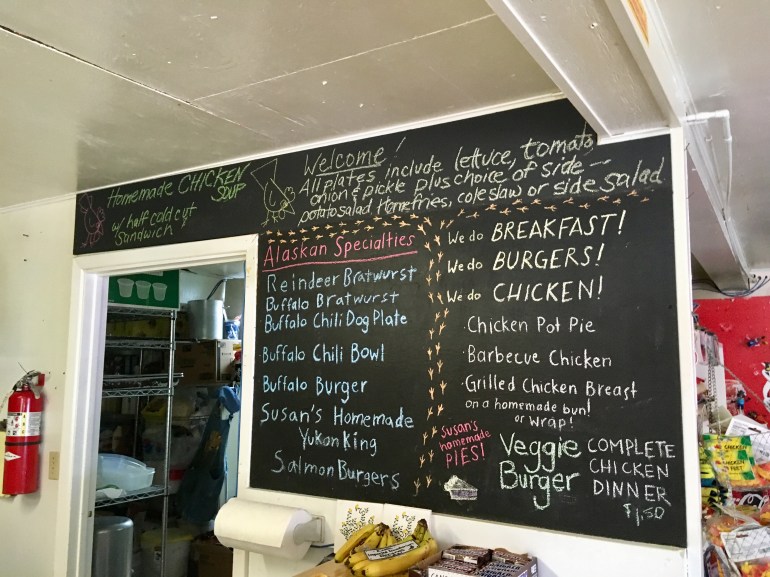 Homemade CHICKEN
SOUP
w/ half cold cut
sandwich
Welcome!
All plates include lettuce, tomato,
onion & pickle plus choice of side--
potato salad homefries, coleslaw or side salad
Alaskan Specialties
Reindeer Bratwurst
Buffalo Bratwurst
Buffalo Chili Dog Plate
Buffalo Chili Bowl
Buffalo Burger
Susan's Homemade
Yukon King
Salmon Burgers
We do BREAKFAST!
We do BURGERS!
We do CHICKEN!
·Chicken Pot Pie
·Barbecue Chicken
·Grilled Chicken Breast
on a homemade bun!
or wrap!
Susan's
homemade
PIES!
Veggie
Burger
COMPLETE
CHICKEN
DINNER